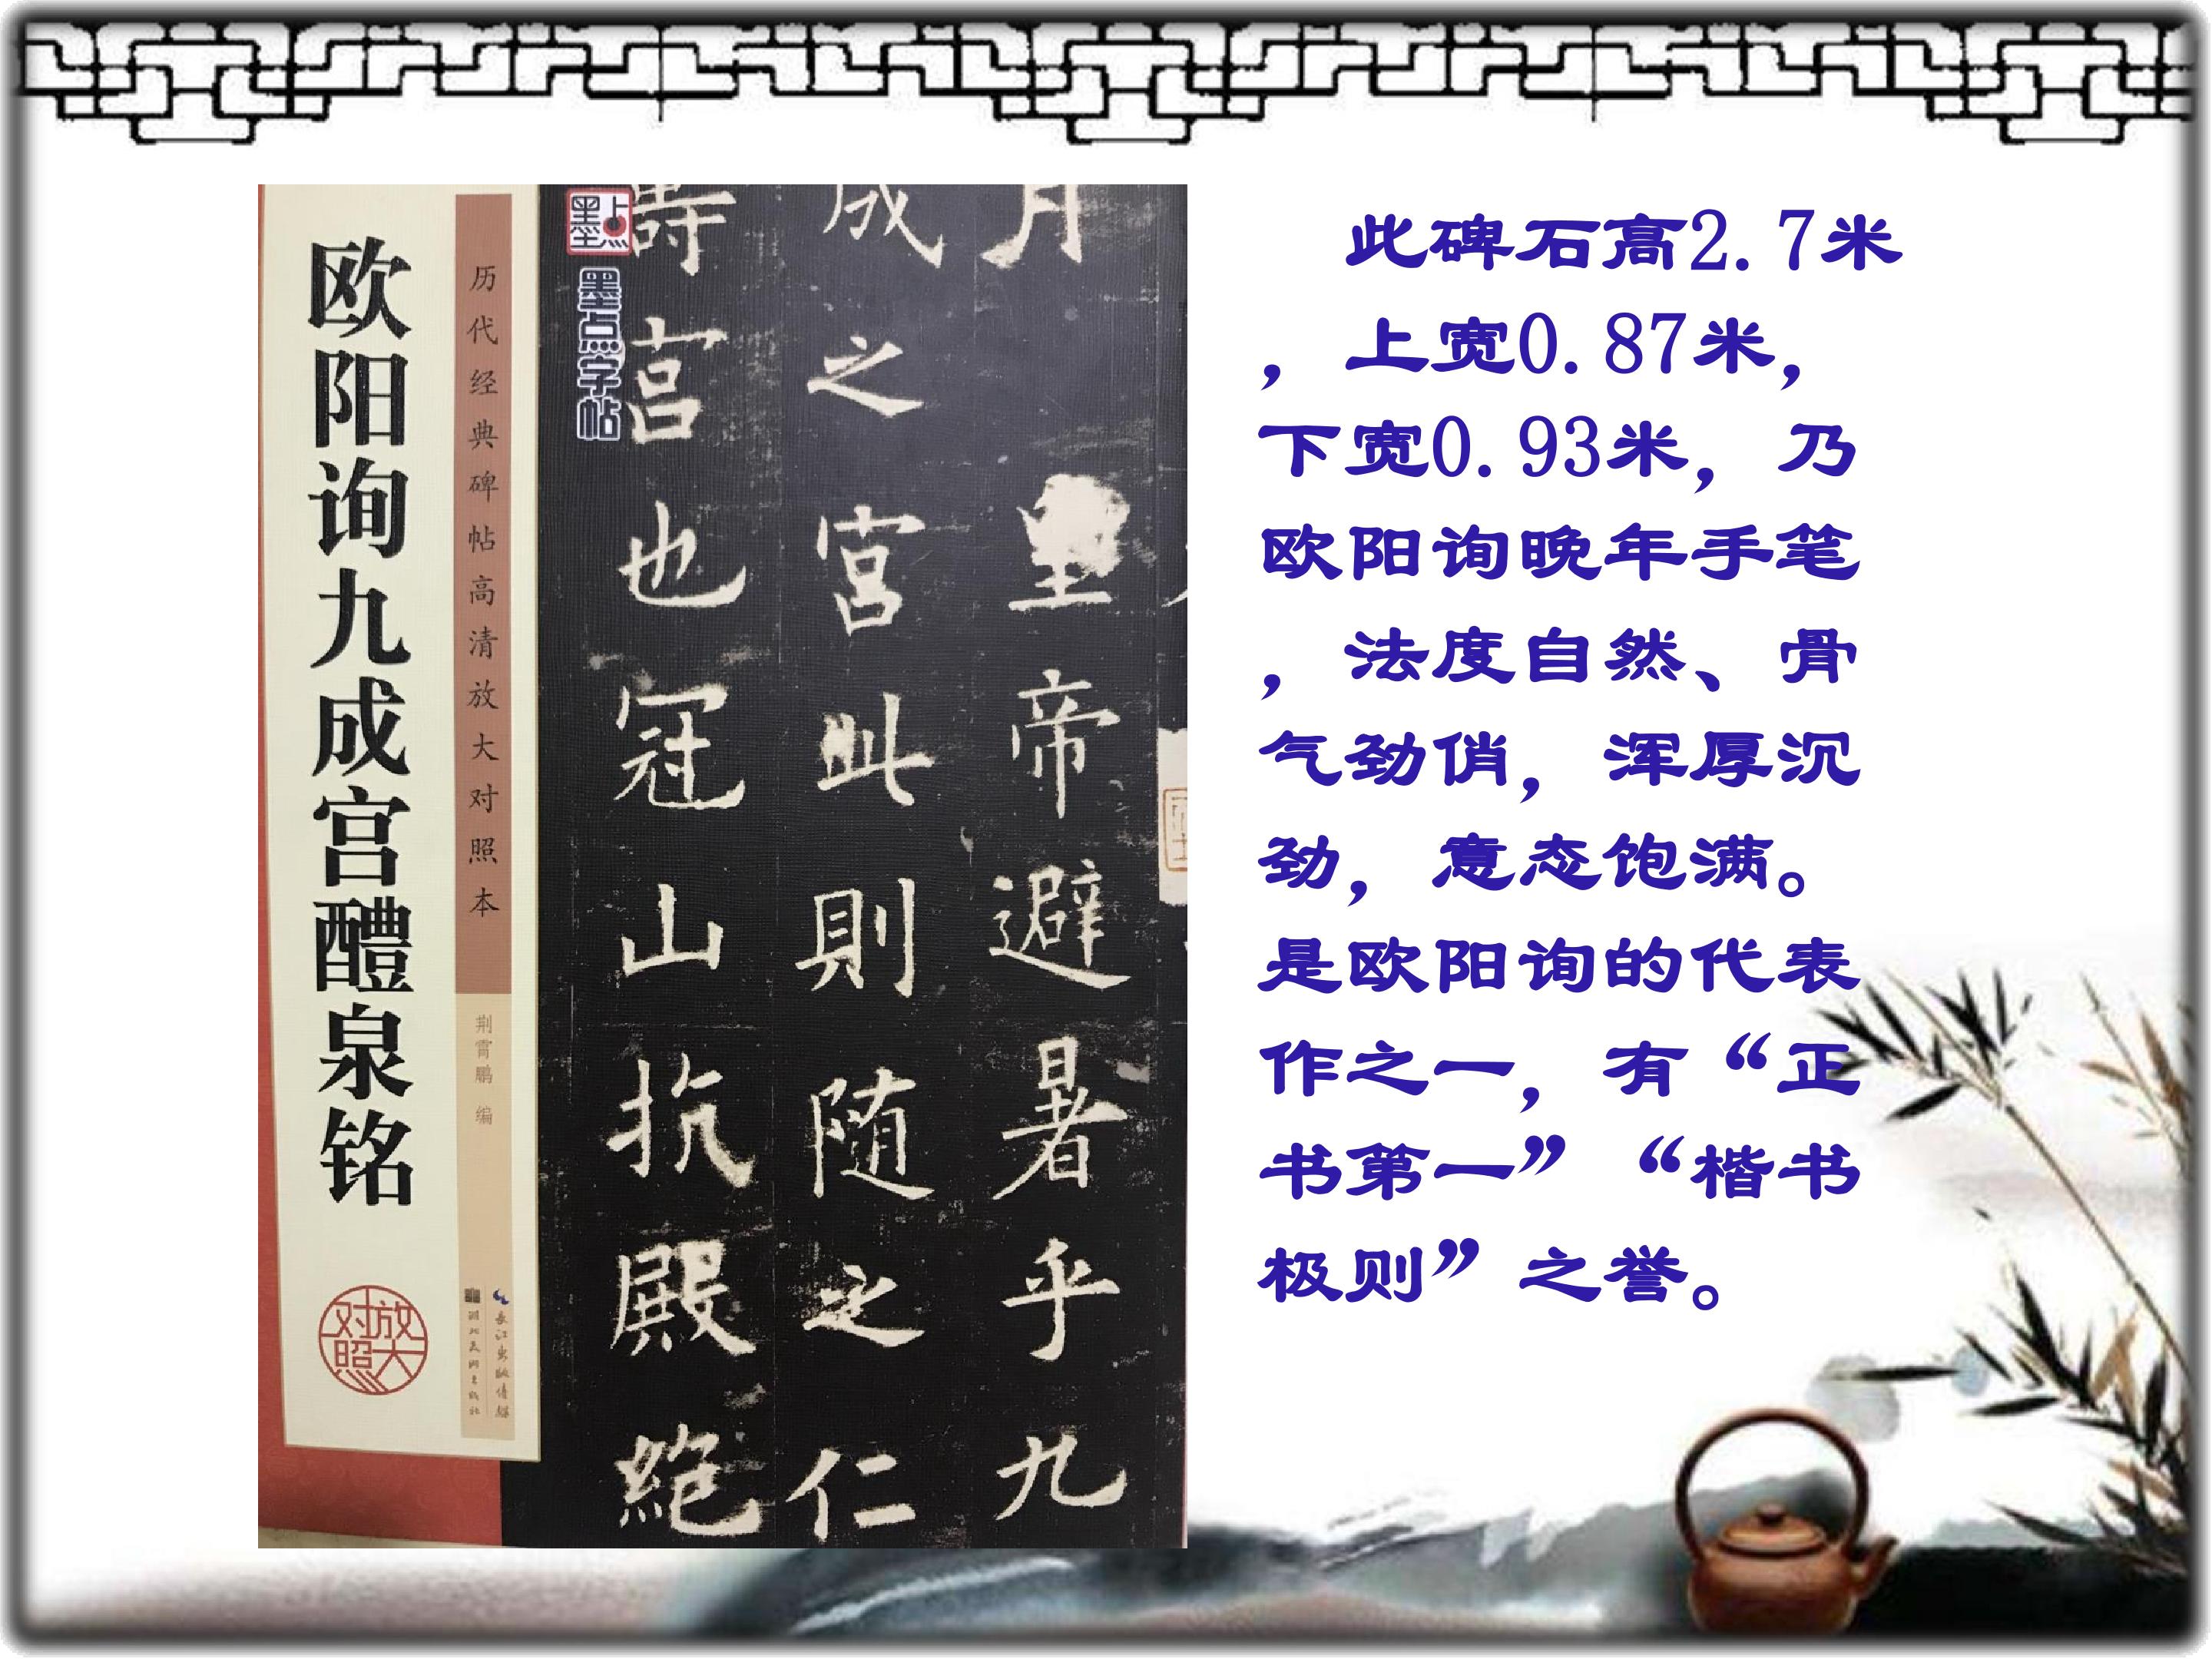 欧阳询九成宫醴泉铭
历代经典碑帖高清放大对照本
荆霄鹏 编
放大
对照
长江出版传媒
湖北美术出版社
墨点
墨点字帖
月 皇帝避暑乎九
成之宫此则随之仁
寿宫也冠山抗殿绝
此碑石高2.7米
，上宽0.87米，
下宽0.93米，乃
欧阳询晚年手笔
，法度自然、骨
气劲俏，浑厚沉
劲，意态饱满。
是欧阳询的代表
作之一，有“正
书第一”“楷书
极则”之誉。